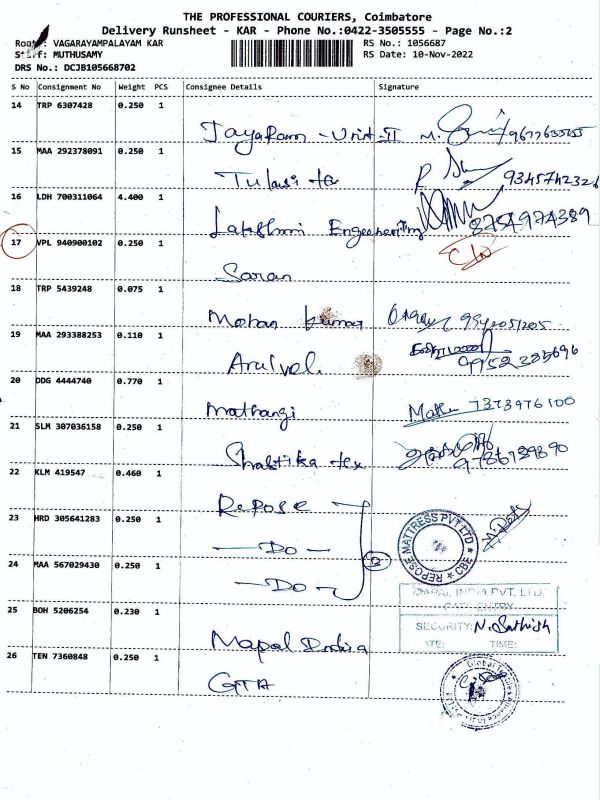 THE PROFESSIONAL COURIERS, Coimbatore
Delivery Runsheet - KAR - Phone No.:0422-3505555 - Page No.:2
Route: VAGARAYAMPALAYAM KAR RS No.: 1056687
Staff: MUTHUSAMY RS Date: 10-Nov-2022
DRS No.: DCJB105668702
S No Consignment No Weight PCS Consignee Details Signature
14 TRP 6307428 0.250 1
Jayaram - Unit-II
15 MAA 292378091 0.250 1
Tulasi tex 9345742326
16 LDH 700311064 4.400 1
Lakshmi Engeneering 8754974389
17 VPL 940900102 0.250 1
Saran
18 TRP 5439248 0.075 1
Mohan Kumar
19 MAA 293388253 0.110 1
Arulvel 9952285696
20 DDG 4444740 0.770 1
Mathangi 7373976100
21 SLM 307036158 0.250 1
Shastika tex 9786739890
22 KLM 419547 0.460 1
Repose
23 HRD 305641283 0.250 1
- Do -
REPOSE MATTRESS PVT LTD * CBE *
24 MAA 567029430 0.250 1
- Do -
MAPAL INDIA PVT. LTD.
GATE ENTRY
25 BOH 5206254 0.230 1
SECURITY: N. Sathish
DATE: TIME:
Mapal India
26 TEN 7360848 0.250 1
GTA